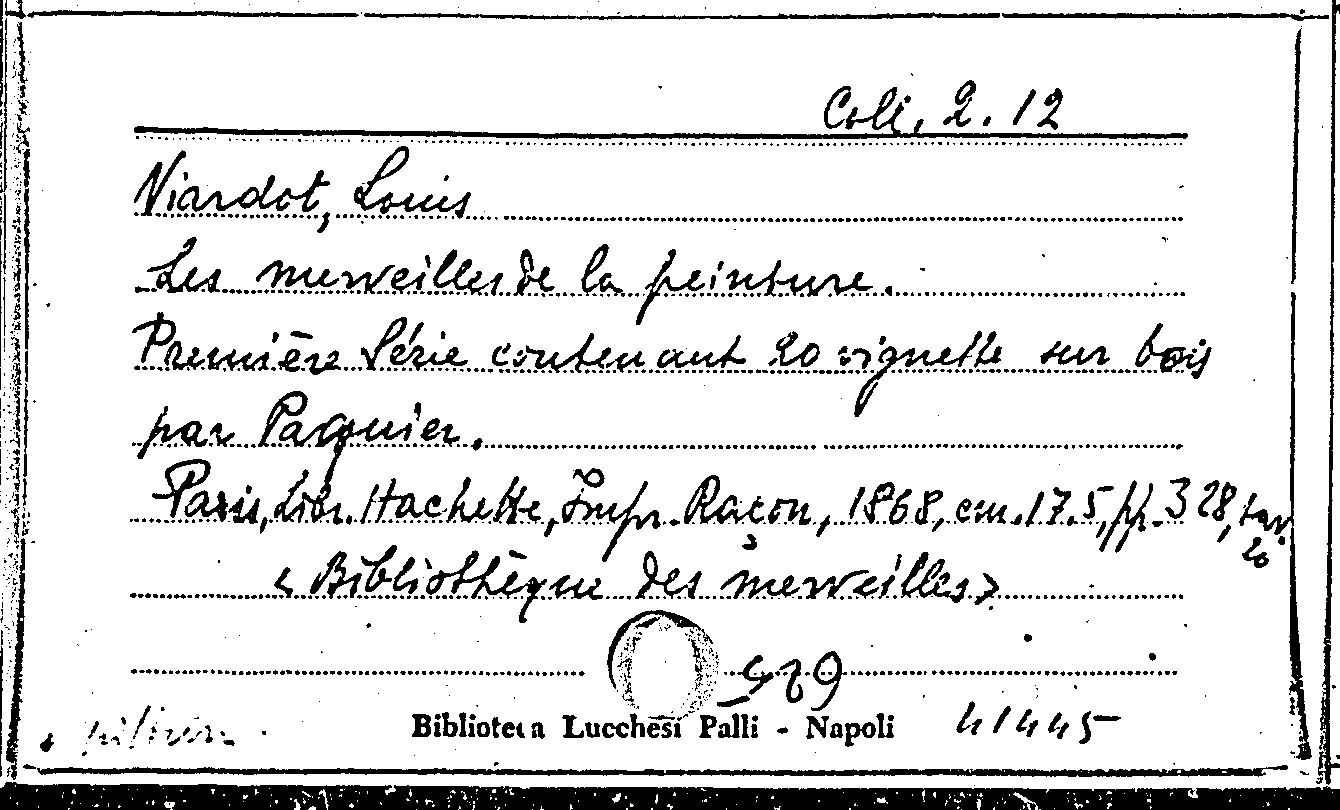 Coll. 2. 12
Viardot, Louis
Les merveilles de la peinture.
Première Série contenant 20 vignette sur bois
par Paquier.
Paris, Libr. Hachette, Impr. Raçon, 1868, cm. 17.5, pp. 328, tav.
20
« Bibliothèque des merveilles»
Biblioteca Lucchesi Palli - Napoli 41445